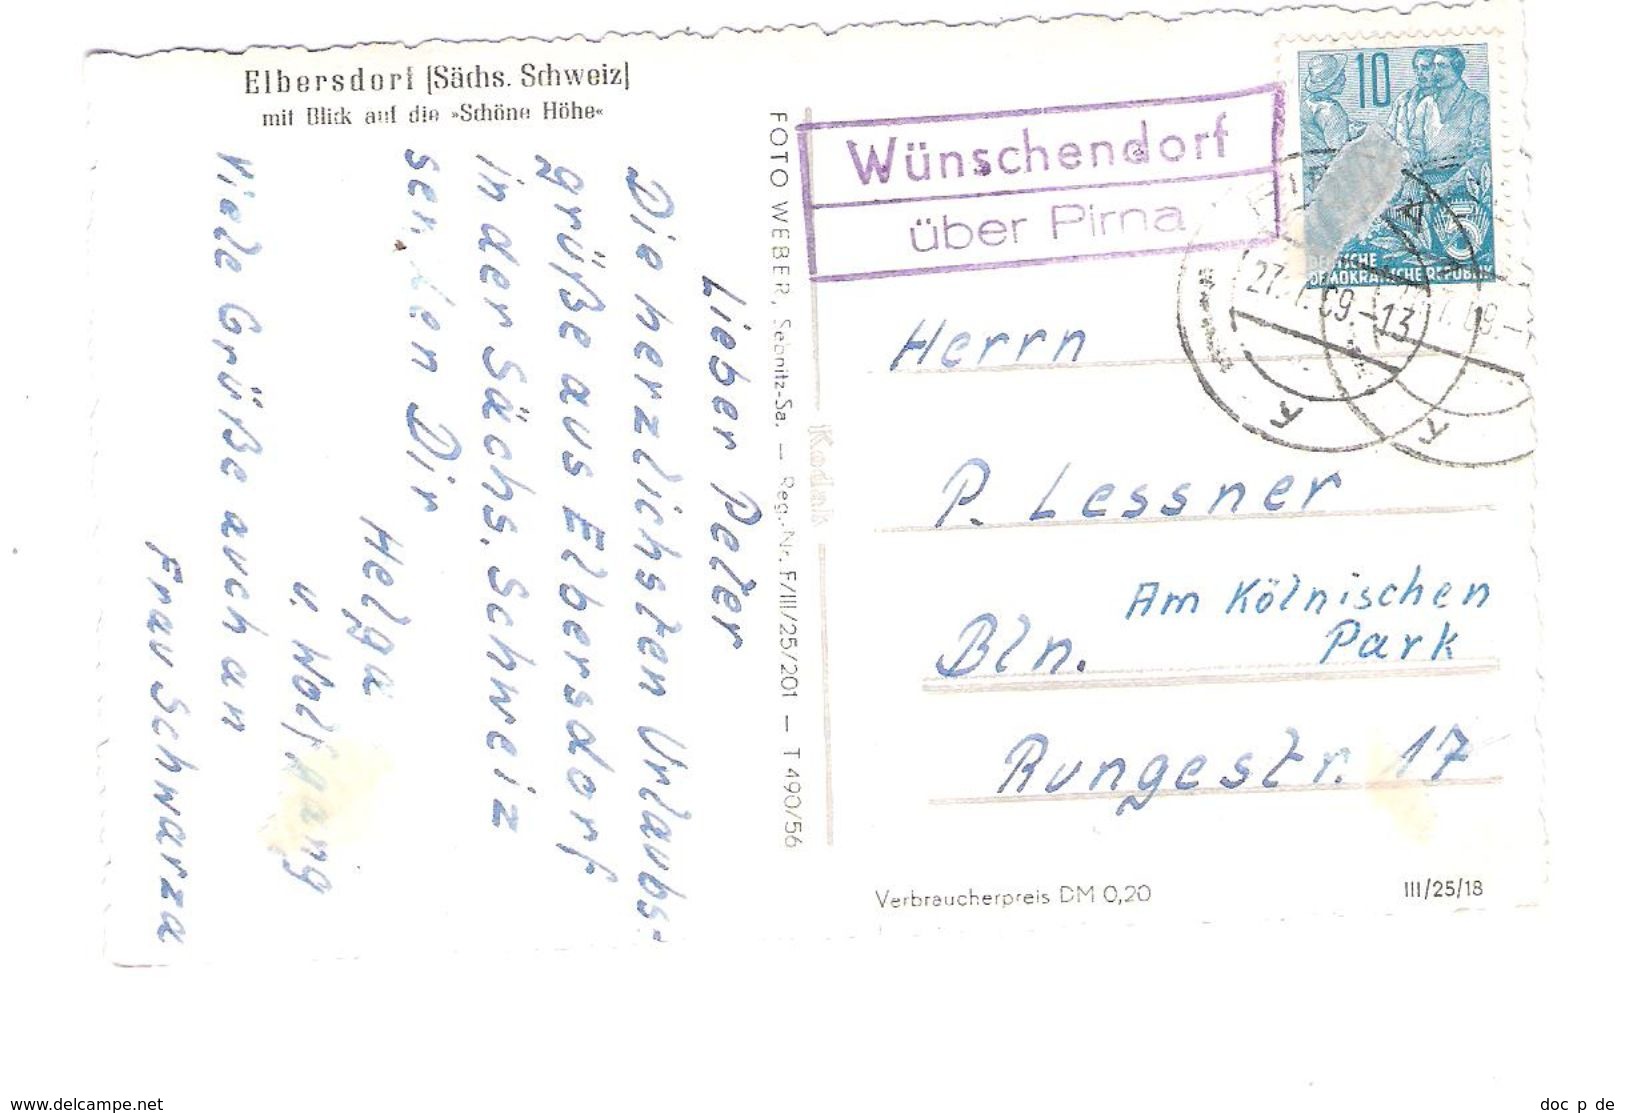 Elbersdorf (Sächs. Schweiz)
mit Blick auf die »Schöne Höhe«
Lieber Peter
Die herzlichsten Urlaubs-
grüße aus Elbersdorf
in der Sächs. Schweiz
senden Dir
Helga
u. Wolfgang
Viele Grüße auch an
Frau Schwarza
FOTO WEBER, Sebnitz-Sa. — Reg.-Nr. F/III/25/201 — T 490/56
Kodak
Wünschendorf
über Pirna
10
DEUTSCHE
DEMOKRATISCHE REPUBLIK
Herrn
P. Lessner
Am Kölnischen
Bln. Park
Rungestr. 17
Verbraucherpreis DM 0,20
III/25/18
www.delcampe.net
doc_p_de